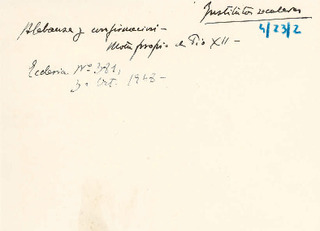 Institutos seculares
4/23/2
Alabanza y confirmacion -
Motu propio de Pio XII -
Ecclesia Nº 381,
30 Oct. 1948 -